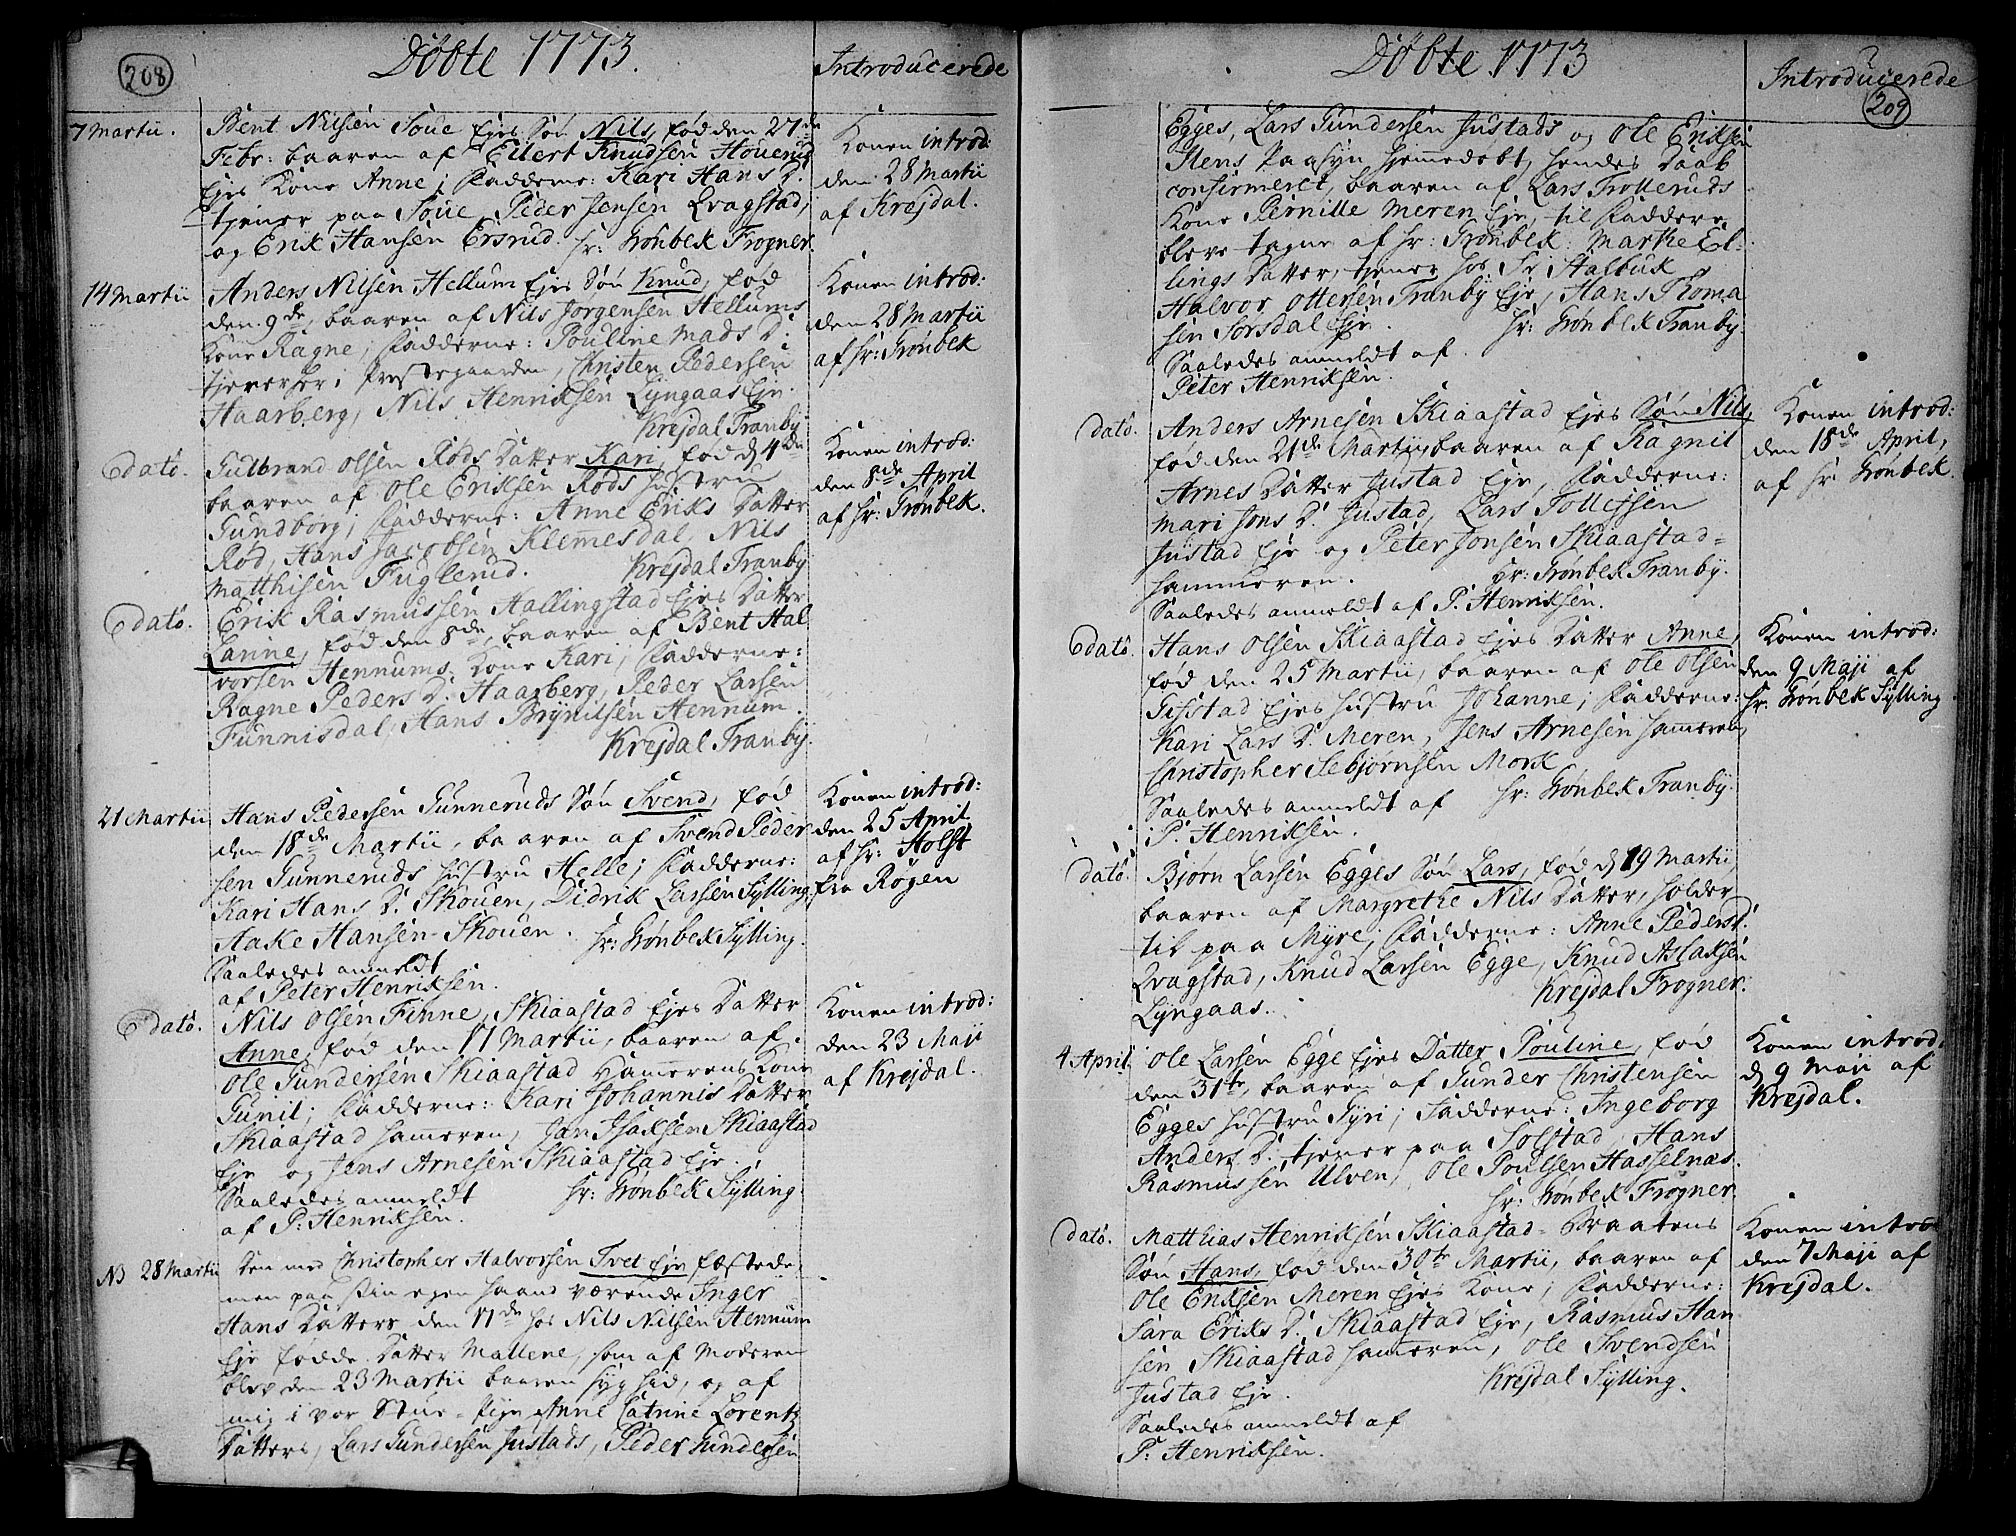 208
Döbte 1773.
Introducerede
7 Martii.
Bent Nilsen Soue Ejes Søn Nils, fød den 27de
Febr: baaren af Eilert Knudsen Houerud
Ejes Kone Anne; Fadderne: Kari Hans D.
tjener paa Soue, Peder Jensen Qvagstad,
og Erik Hansen Ersrud. Hr: Grönbek Frogner.
Konen introd:
den 28 Martii
af Krejdal.
14 Martii
Anders Nilsen Hellum Ejes Søn Knud, fød
den 9de, baaren af Nils Jorgensen Hellums
Kone Ragne; Fadderne: Pouline Mads D.
tjener her i Præstegaarden, Christen Pedersen
Haarberg, Nils Henriksen Lyngaas Eje.
Krejdal Tranby
Konen introd:
den 28 Martii
af Hr: Grönbek
Edato.
Gulbrand Olsen Röds Datter Kari, fød d 4de
baaren af Ole Eriksen Röds Hustru
Gundborg; Fadderne: Anne Eriks Datter
Röd, Hans Jacobsen Klemesdal, Nils
Matthisen Fuglerud. Krejdal Tranby
Konen introd:
den 8de April
af Hr: Grönbek.
Edato.
Erik Rasmussen Hallingstad Ejes Datter
Lanine, fød den 8de, baaren af Bent Hal
vorsen Hennums Kone Kari; Fadderne:
Ragne Peders D. Haarberg, Peder Larsen
Funnisdal, Hans Brynilsen Hennum.
Krejdal Tranby.
21 Martii
Hans Pedersen Gunneruds Søn Svend, fød
den 18de Martii, baaren af Svend Peder
sen Gunneruds Hustru Helle; Fadderne:
Kari Hans D. Skouen, Didrik Larsen Sylling,
Aake Hansen Skouen. Hr: Grönbek Sylling.
Saaledes anmeldt
af Peter Henriksen.
Konen introd:
den 25 April
af Hr: Holst
fra Rögen
Edato.
Nils Olsen Finne, Skiaastad Ejes Datter
Anne, fød den 11 Martii, baaren af
Ole Gundersen Skiaastad Hamerens Kone
Gunil; Fadderne: Kari Johannis Datter
Skiaastad Hameren, Jan Isaksen Skiaastad
Eje og Jens Arnesen Skiaastad Eje.
Saaledes anmeldt Hr: Grönbek Sylling.
af P. Henriksen.
Konen introd:
den 23 Maji
af Krejdal.
NB 28 Martii
Den med Christopher Halvorsen Tvet Eje fæstede
men paa sin egen Haand værende Inger
Hans Datters den 17de hos Nils Nilsen Hennum
Eje fødde Datter Mallene, som af Moderen
blev den 23 Martii baaren syg hid, og af
mig i vor Stue, Pige Anne Catrine Lorentz
Datters, Lars Gundersen Justads, Peder Gundersen
Döbte 1773
Introducerede
209
Egges, Lars Gundersen Justads og Ole Eriksen
Stens Paasyn hjemmedöbt, hendes Daab
confirmeret, baaren af Lars Trolleruds
Kone Pernille Meren Eje, til Faddere
bleve tagne af Hr: Grönbek: Marthe El-
lings Datter, tjener hos Sr. Stalbuk
Halvor Ottersen Tranby Eje, Hans Thoma
sen Sorsdal Eje. Hr: Grönbek Tranby.
Saaledes anmeldt af
Peter Henriksen.
dato.
Anders Arnesen Skiaastad Ejes Søn Nils,
fød den 21de Martii, baaren af Ragnil
Arnes Datter Justad Eje, Fadderne:
Mari Jons D. Justad, Lars Tollefsen
Justad Eje og Peter Jonsen Skiaastad-
Hammeren. Hr: Grönbek Tranby.
Saaledes anmeldt af P. Henriksen.
Konen introd:
den 18de April,
af Hr Grönbek.
Edato.
Hans Olsen Skiaastad Ejes Datter Anne,
fød den 25 Martii, baaren af Ole Olsen
Gisstad Ejes Hustru Johanne; Fadderne:
Kari Lars D. Meren, Jens Arnesen Hameren,
Christopher Sebjornsen Mork
Saaledes anmeldt af Hr: Grönbek Tranby.
P. Henriksen.
Konen introd:
den 9 Maji af
Hr: Grönbek Sylling.
dato.
Bjørn Larsen Egges Søn Lars, fød d 19 Martii,
baaren af Margrethe Nils Datter, holder
til paa Myre; Fadderne: Anne Peders D.
Qvagstad, Knud Larsen Egge, Knud Aslaksen
Lyngaas. Krejdal Frogner.
4 April
Ole Larsen Egge Ejes Datter Pouline, fød
den 31te, baaren af Gunder Christensen
Egges Hustru Syri; Fadderne: Ingeborg
Anders D. tjener paa Solstad, Hans
Rasmussen Ulven, Ole Poulsen Hasselnæs.
Hr: Grönbek Frogner.
Konen introd.
d 9 Maji af
Krejdal.
dato.
Matthias Henriksen Skiaastad-Braatens
Søn Hans, fød den 30te Martii, baaren af
Ole Eriksen Meren Ejes Kone; Fadderne:
Sara Eriks D. Skiaastad Eje, Rasmus Han
sen Skiaastad Hameren, Ole Svendsen
Justad Eje. Krejdal Sylling.
Saaledes anmeldt af
P. Henriksen.
Konen introd
den 7 Maji af
Krejdal.